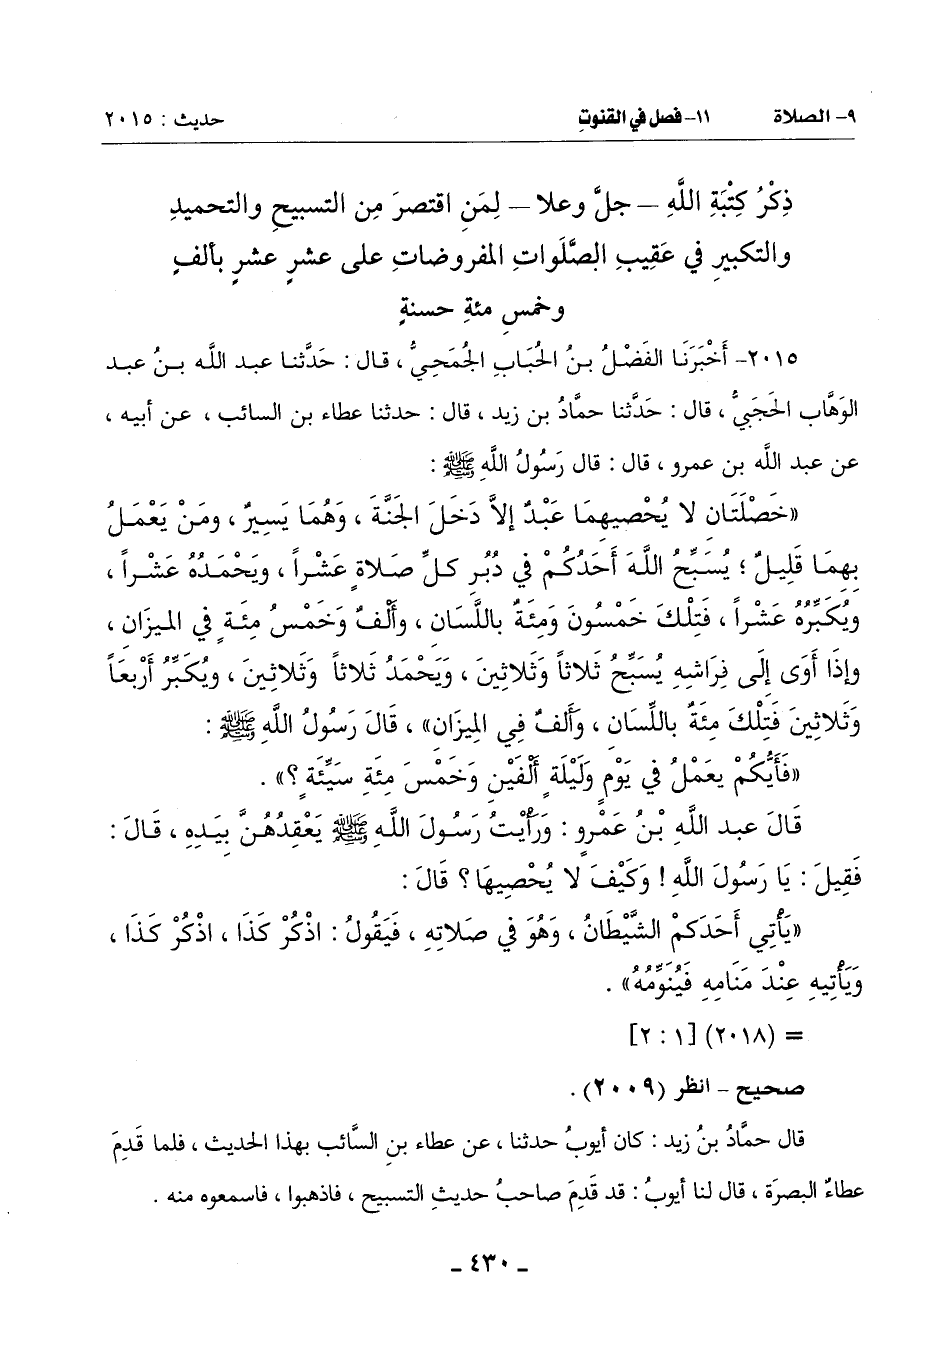 ٩- الصلاة ١١- فصل في القنوتِ حديث : ٢٠١٥
ذِكْرُ كِتْبَةِ اللَّهِ – جلَّ وعلا – لِمَنِ اقتصرَ مِن التسبيحِ والتحميدِ
والتكبيرِ في عَقِيبِ الصَّلَواتِ المفروضاتِ على عشرٍ عشرٍ بألفٍ
وخمسِ مئةِ حسنةٍ
٢٠١٥- أَخْبَرَنَا الفَضْلُ بنُ الحُبَابِ الجُمَحِيُّ ، قال : حَدَّثنا عبد الله بنُ عبد
الوَهَّاب الحَجَبِيُّ ، قال : حَدَّثنا حمَّادُ بن زيد ، قال : حدثنا عطاء بن السائب ، عن أبيه ،
عن عبد اللَّه بن عمرو ، قال : قال رَسُولُ اللَّهِ ﷺ :
«خَصْلَتَان لا يُحْصِيهِمَا عَبْدٌ إلاَّ دَخَلَ الجَنَّةَ ، وَهُمَا يَسِيرٌ ، ومَنْ يَعْمَلُ
بِهِمَا قَلِيلٌ ؛ يُسَبِّحُ اللَّهَ أَحَدُكُمْ في دُبُرِ كلِّ صلاةٍ عَشْراً ، ويَحْمَدُهُ عَشْراً ،
ويُكَبِّرُهُ عَشْراً ، فَتِلْكَ خَمْسُونَ وَمِئَةٌ باللِّسَان ، وأَلْفٌ وَخَمْسُ مِئَةٍ في الميزَان ،
وإذَا أَوَى إلَى فِرَاشِهِ يُسَبِّحُ ثَلاثاً وَثَلاثِينَ ، وَيَحْمَدُ ثَلاثاً وَثَلاثِينَ ، ويُكَبِّرُ أَرْبَعَاً
وَثَلاثِينَ فَتِلْكَ مِئَةٌ باللِّسَان ، وأَلفٌ فِي المِيزَان» ، قَالَ رَسُولُ اللَّهِ ﷺ :
«فَأَيُّكُمْ يعمَلُ في يَوْمٍ وَلَيْلَةٍ أَلْفَيْنِ وَخَمْسَ مِئَةِ سَيِّئَةٍ ؟» .
قَالَ عبد اللَّهِ بْنُ عَمْرٍو : وَرَأَيْتُ رَسُولَ اللَّهِ ﷺ يَعْقِدُهُنَّ بيَدِهِ ، قَالَ :
فَقِيلَ : يَا رَسُولَ اللَّهِ ! وَكَيْفَ لا يُحْصِيهَا ؟ قَالَ :
«يَأْتِي أَحَدَكمْ الشَّيْطَانُ ، وَهُوَ في صَلاتِهِ ، فَيَقُولُ : اذْكُرْ كَذَا ، اذْكُرْ كَذَا ،
وَيَأْتِيهِ عِنْدَ مَنَامِهِ فَيُنَوِّمُهُ» .
= (٢٠١٨) [١ : ٢]
صحيح - انظر (٢٠٠٩) .
قال حمَّادُ بنُ زيد : كان أيوبُ حدثنا ، عن عطاء بنِ السَّائب بهذا الحديث ، فلما قَدِمَ
عطاءٌ البصرَة ، قال لنا أيوبُ : قد قَدِمَ صاحبُ حديثِ التسبيحِ ، فاذهبوا ، فاسمعوه منه .
- ٤٣٠ -